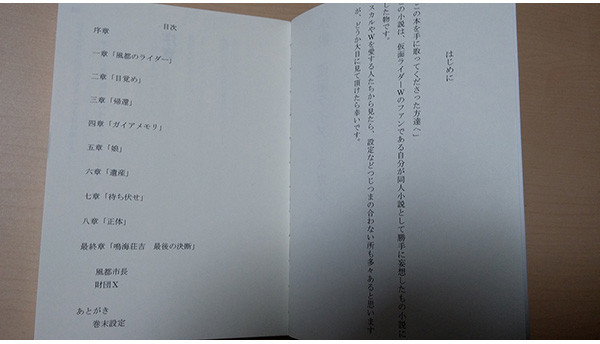 はじめに
この本を手に取ってくださった方達へ」
の小説は、仮面ライダーWのファンである自分が同人小説として勝手に妄想したもの小説に
した物です。
スカルやWを愛する人たちから見たら、設定などつじつまの合わない所も多々あると思います
が、どうか大目に見て頂けたら幸いです。
目次
序章
一章「風都のライダー」
二章「目覚め」
三章「帰還」
四章「ガイアメモリ」
五章「娘」
六章「遺産」
七章「待ち伏せ」
八章「正体」
最終章「鳴海荘吉　最後の決断」
風都市長
財団X
あとがき
巻末設定